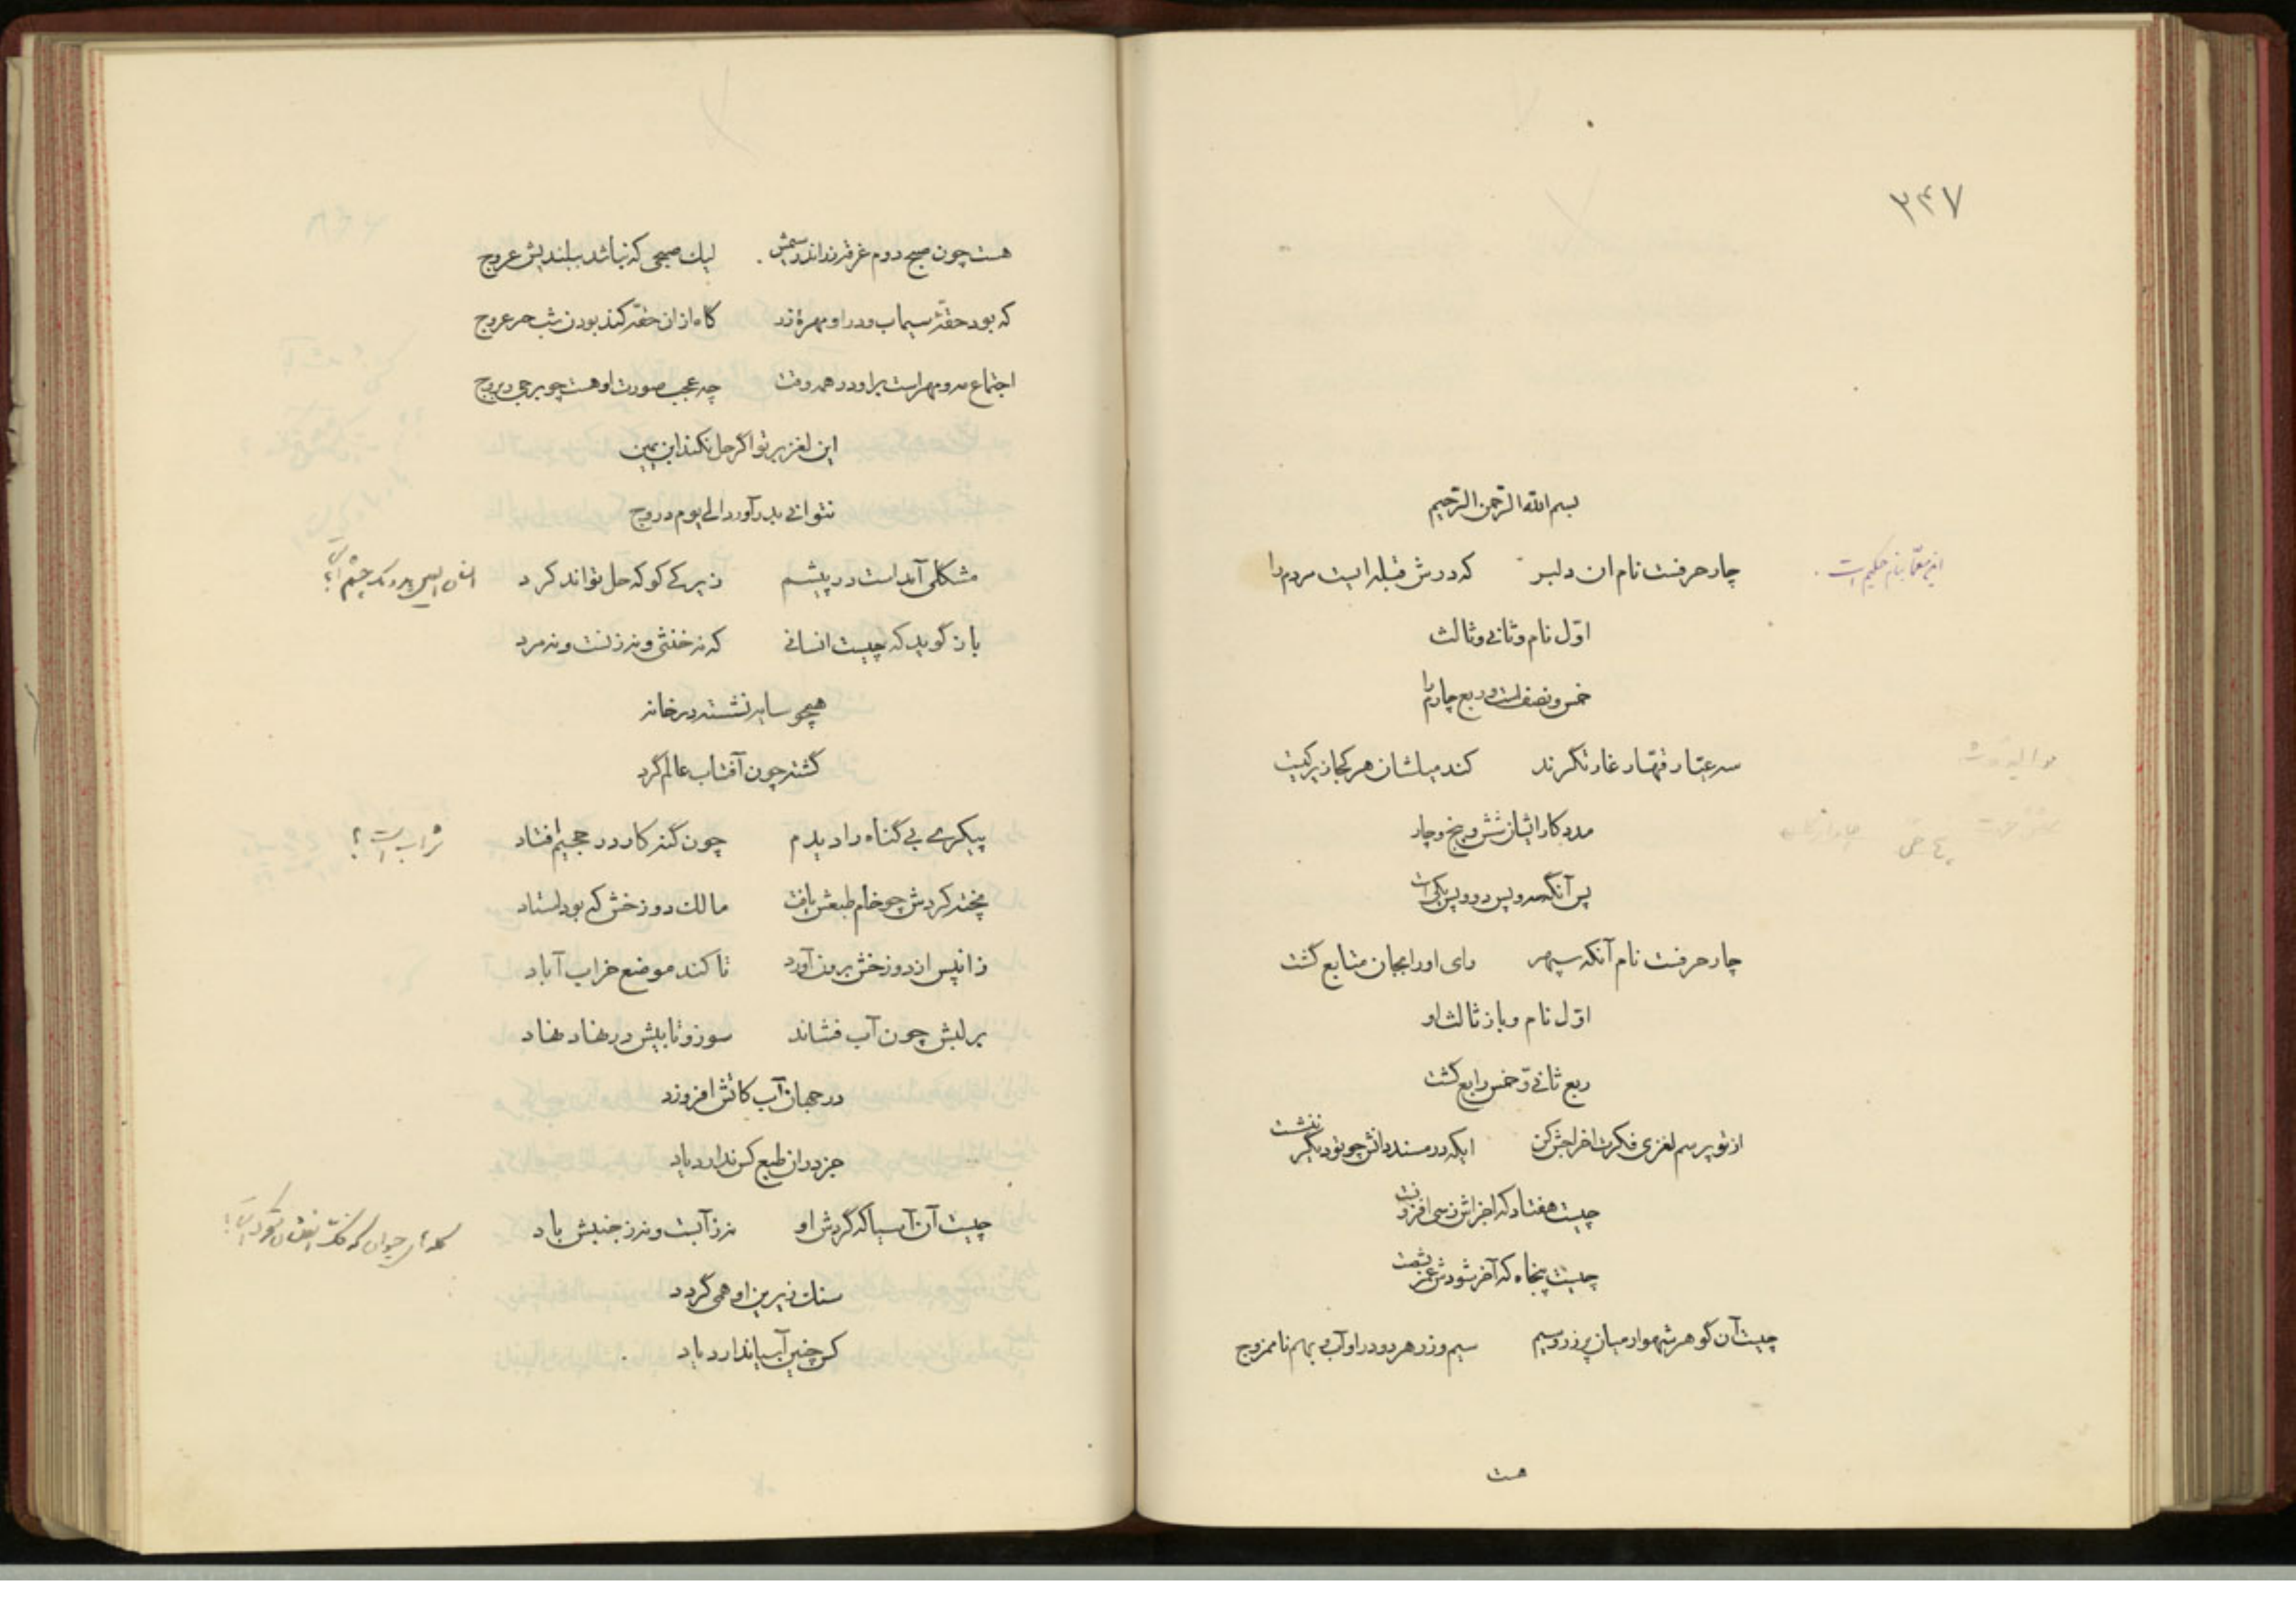 ۲۴۷
بسم الله الرحمن الرحیم
چار حرفست نام ان دلبر که درش قبله ایست مردم را
این معما بنام حکیم است
اوّل نام و ثانی و ثالث
خمس و نصف است و ربع چارم را
سه عیّار قهّار غارتگرند کند میلشان هر کجا زیرکیست
مدد کار ایشان شش و پنج و چار
پس آنگه سه و پس دو و پس یکی است
چار حرفست نام آنکه سپهر رای او را بجان متابع گشت
اوّل نام و باز ثالث او
ربع ثانی و خمس رابع گشت
از تو پرسم لغزی فکرت اخراجش کن ایکه در مسند دانش چو تو دیگر ننشست
چیست هفتاد که اجزاش ز سی افزونست
چیست پنجاه که آخر شودش عمز بشصت
چیست آن گوهر شهوار میان پر زر و سیم سیم و زر هر دو در او آب و بهم ناممزوج
هست
هست چون صبح دوم غرقه نداند سمش لیک صبحی که نباشد ببلندیش عروج
که بود حقه سیماب و در او مهره زر گاه از ان حقه کند بودن شب حر عروج
اجتماع مه و مهر است براو در همه وقت چه عجب صورت او هست چو برجی ز بروج
این لغز بر تو اگر حل نکند ابن یمین
نتوانی بدر آورد الی یوم دروج
مشکلی آمداست در پیشم زیرکے کو که حل تواند کرد
باز گوید که چیست انسانی که نه خنثی و نه زنست و نه مرد
همچو سایه نشسته در خانه
گشته چون آفتاب عالم گرد
پیکرے بی گناه را دیدم چون گنه کار در جحیم افتاد
شراب است؟
پخته کردش چو خام طبعش یافت مالک دوزخش که بود استاد
زانپس از دوزخش برون آورد تا کند موضع خراب آباد
بر لبش چون آب فشاند سوز و تابیش در نهاد نهاد
در جهان آب کاتش افروزد
جز در ان طبع کس ندارد یاد
چیست آن آسیا که گردش او نه ز آبست و نه ز جنبش باد
سنک زیرین او همی گردد
کس چنین آسیا ندارد یاد